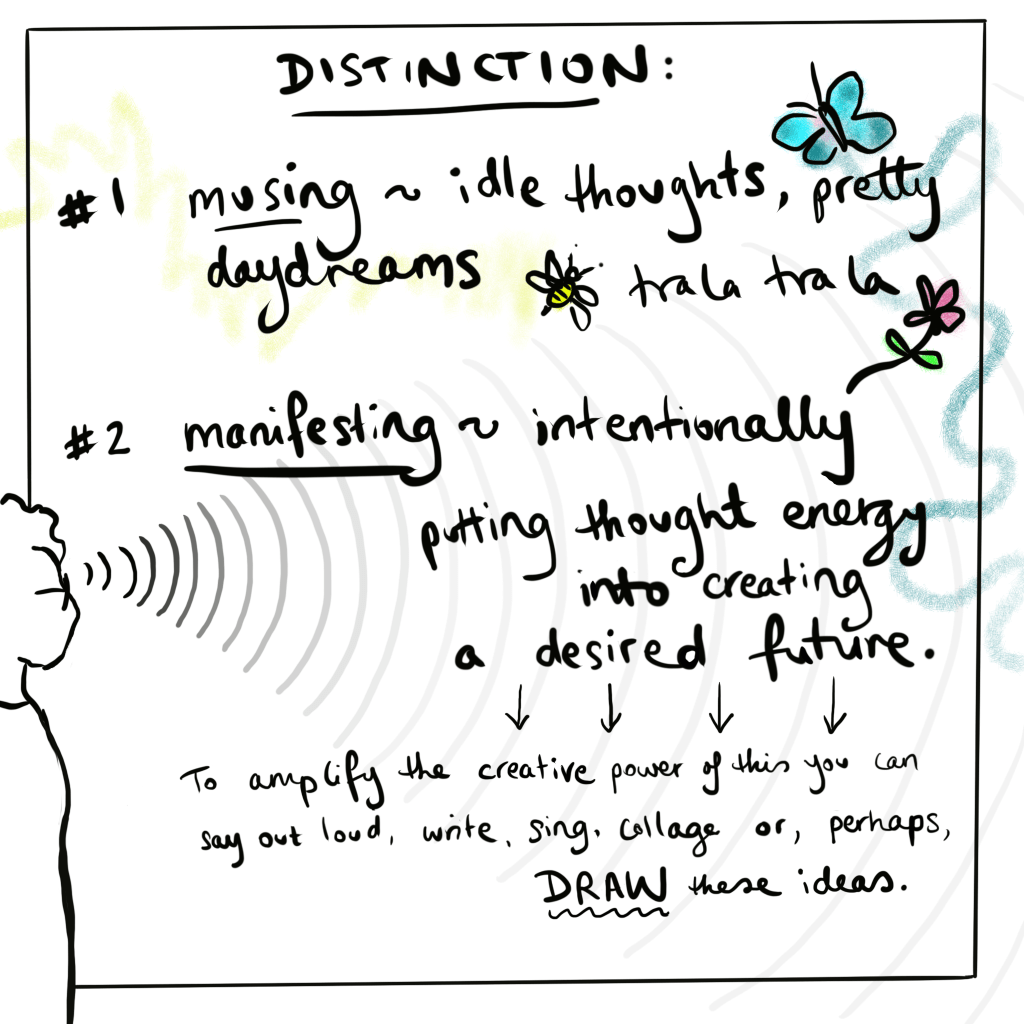 DISTINCTION:
#1 musing ~ idle thoughts, pretty
daydreams trala trala
#2 manifesting ~ intentionally
putting thought energy
into creating
a desired future.
To amplify the creative power of this you can
say out loud, write, sing, collage or, perhaps,
DRAW these ideas.